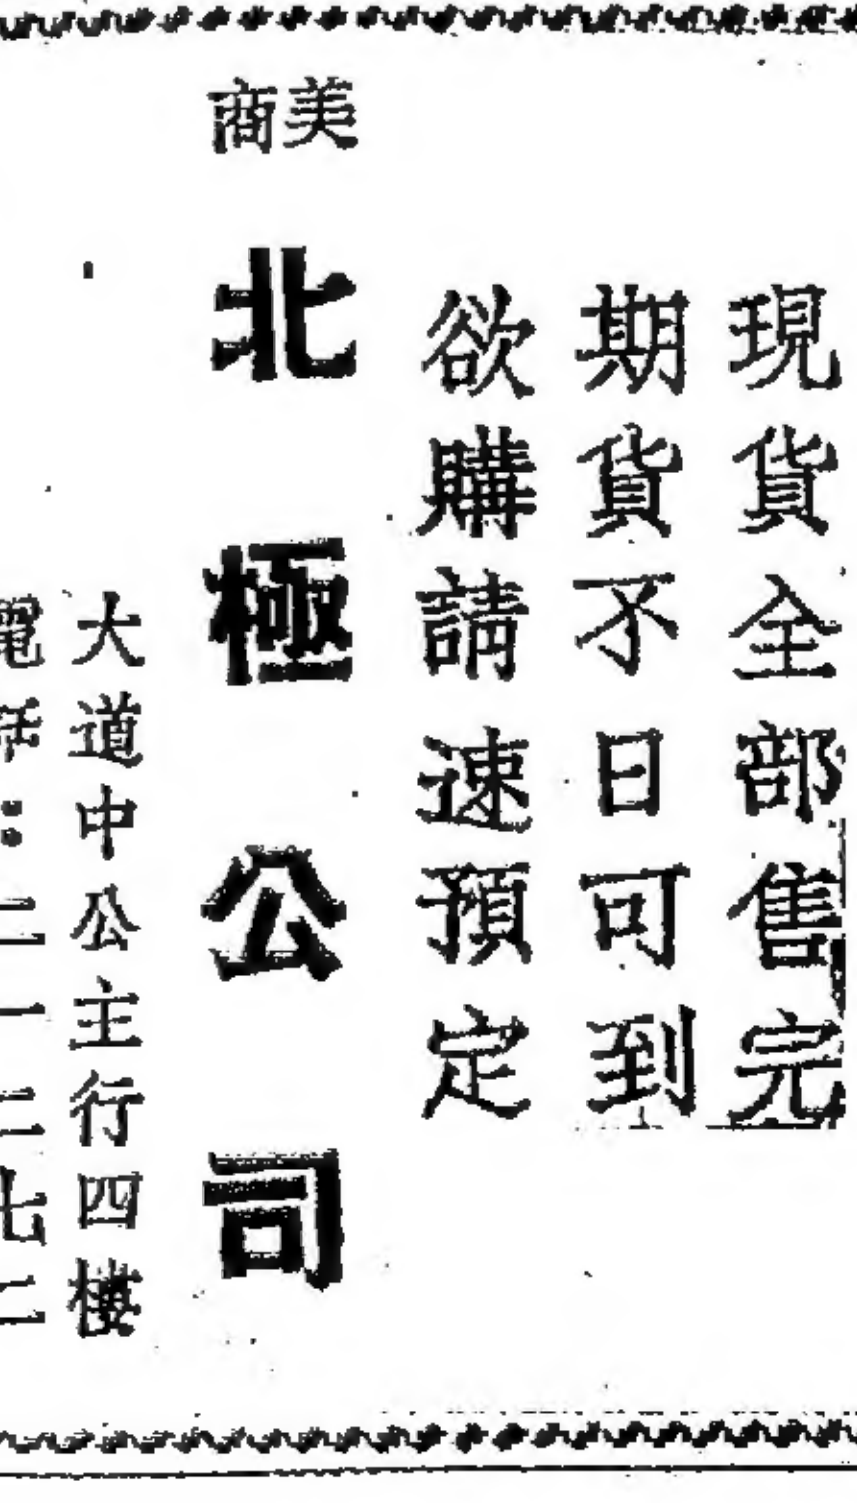 現貨全部售完
期貨不日可到
欲購請速預定
美商
北極公司
大道中公主行四樓
電話：二一二七二